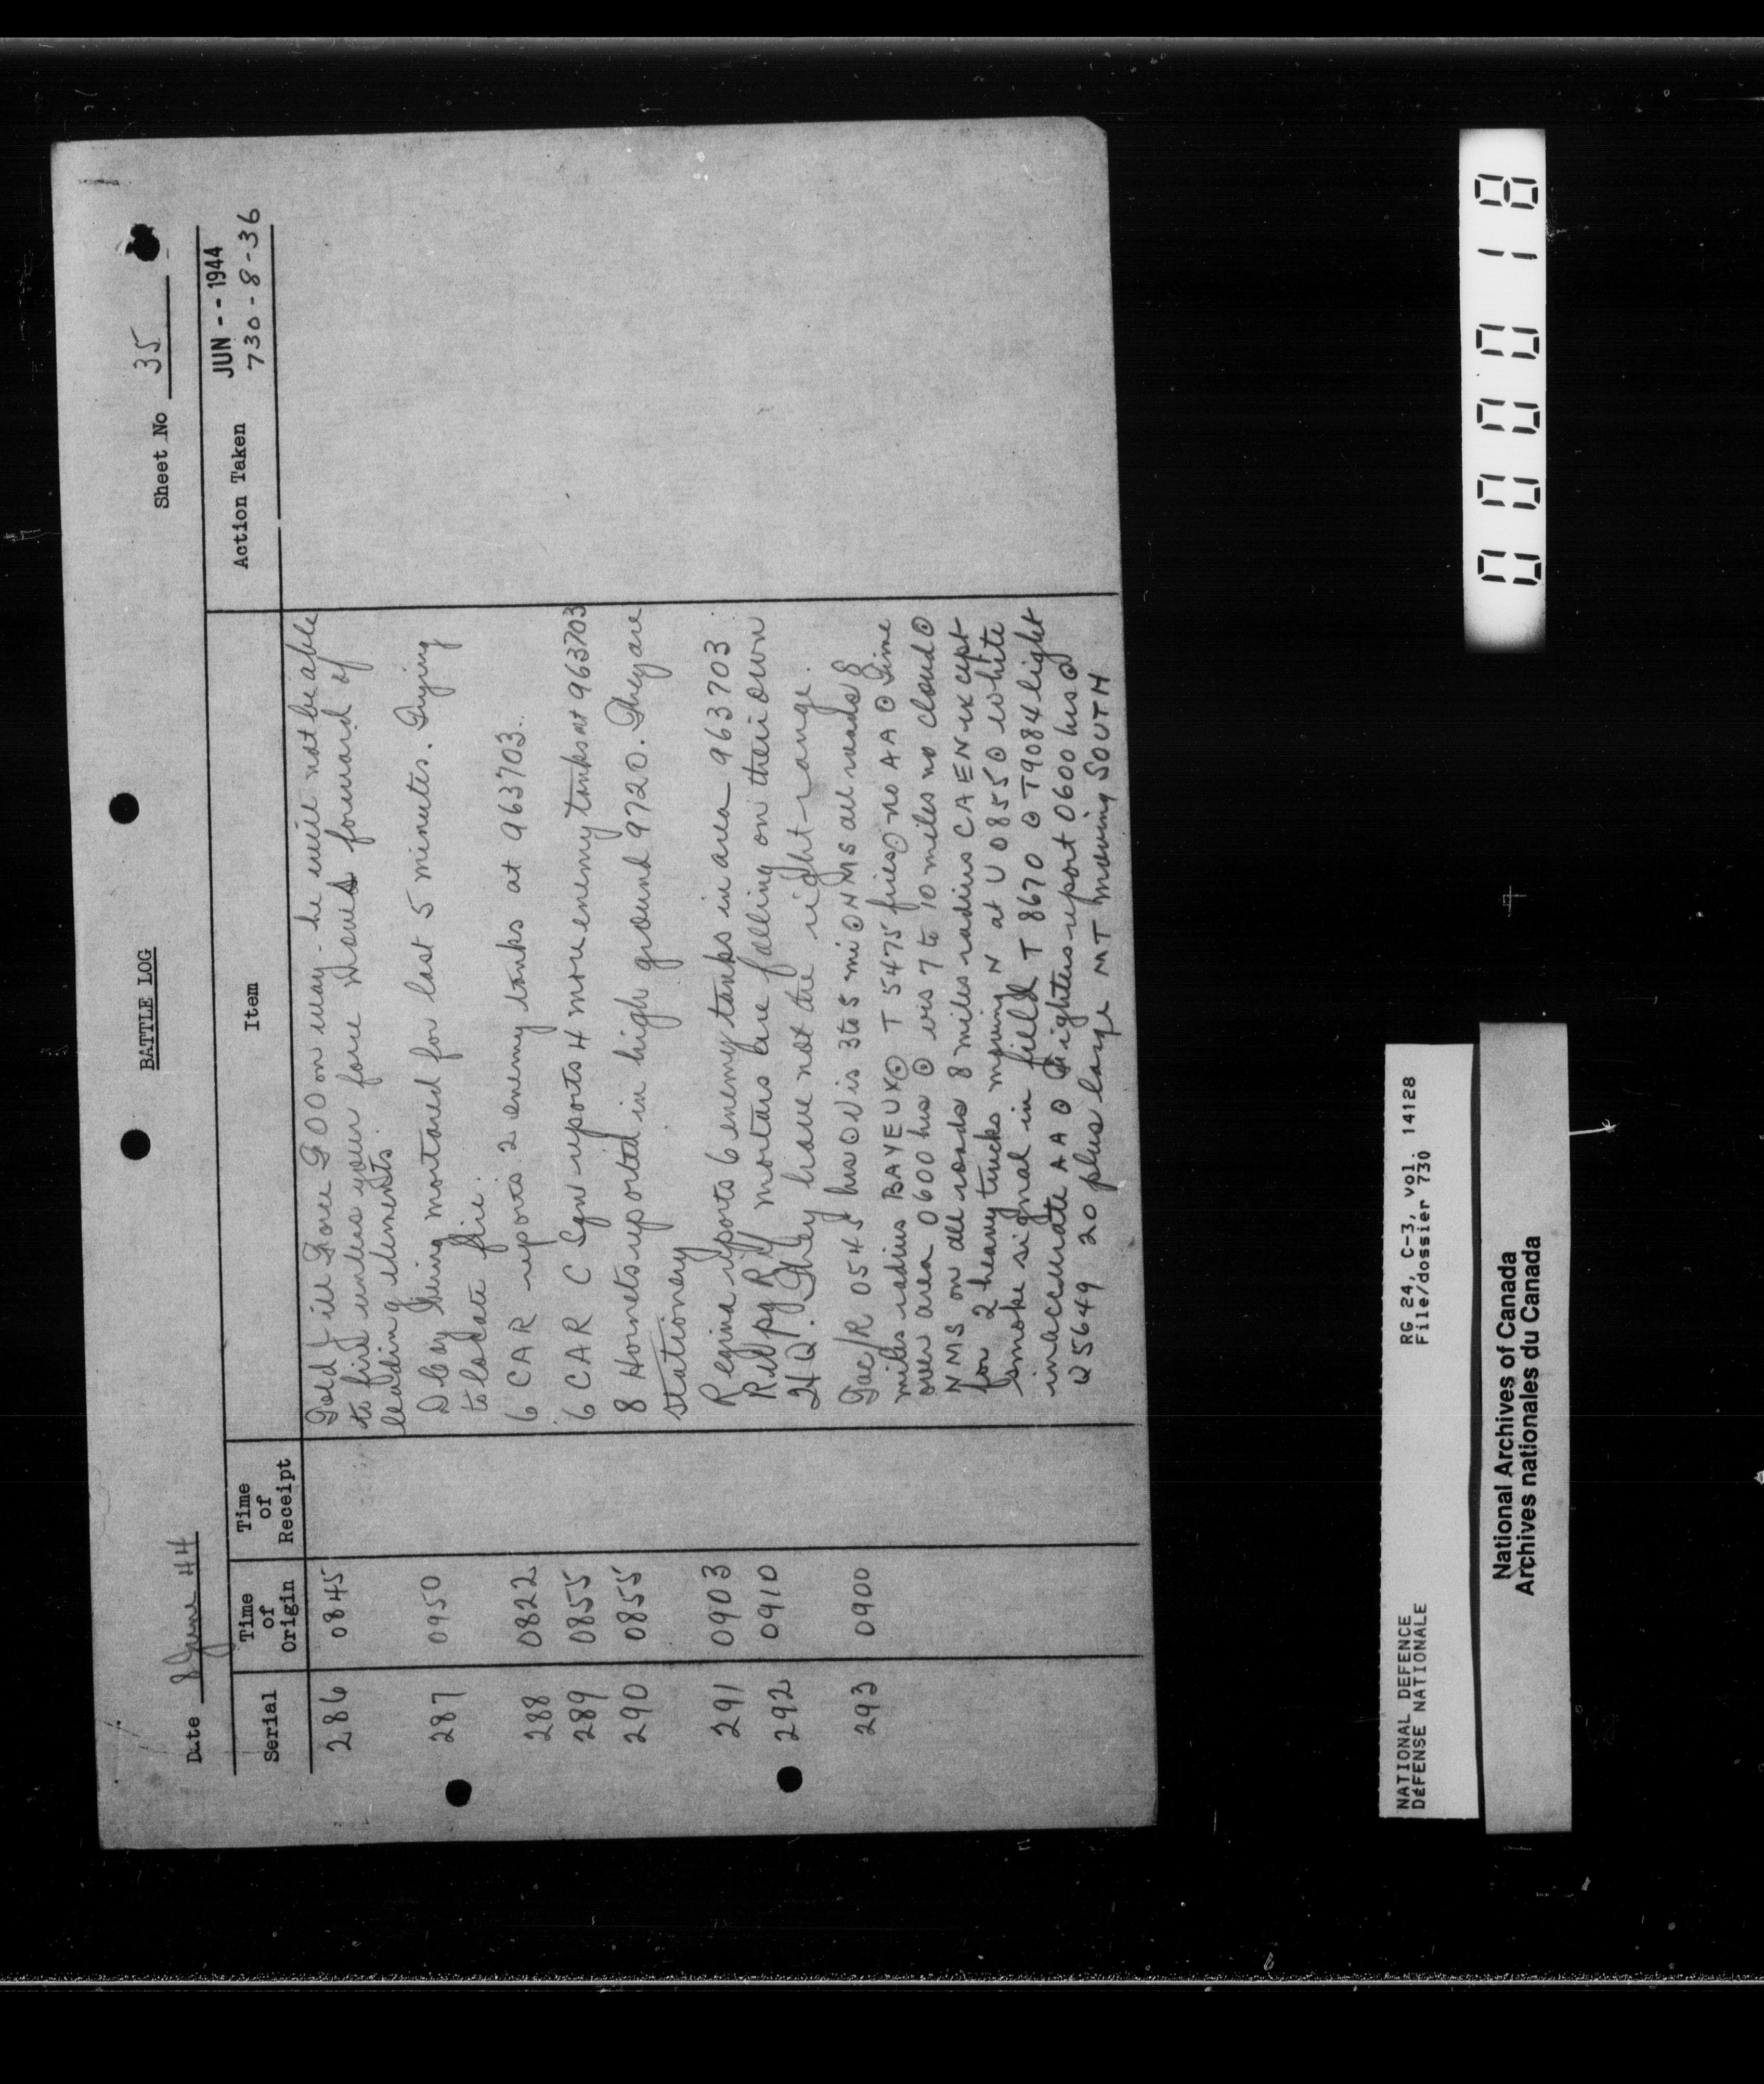 BATTLE LOG
Date 8 June 44
Sheet No 35
Serial
Time of Origin
Time of Receipt
Item
Action Taken
JUN -- 1944
730-8-36
286 0845 Gold will Force FOO on way - he will not be able
to fire unless your force moves forward of
leading elements
287 0950 D Coy being mortared for last 5 minutes. Trying
to locate fire.
288 0822 6 CAR reports 2 enemy tanks at 963703.
289 0855 6 CAR C Sqn reports 4 more enemy tanks at 963703
290 0855 8 Hornets reported in high ground 9720. They are
stationery
291 0903 Regina reports 6 enemy tanks in area 963703.
292 0910 mortars are falling on their own
HQ. They have not the right range.
293 0900 Tac/R 0545 hrs ⊙ Vis 3 to 5 mi ⊙ NMS all roads 8
miles radius BAYEUX ⊙ T 5475 fires ⊙ no AA ⊙ Time
over area 0600 hrs ⊙ vis 7 to 10 miles no cloud ⊙
NMS on all roads 8 miles radius CAEN except
for 2 heavy trucks moving N at U 0855 ⊙ white
smoke signal in field T 8670 ⊙ T9084 light
inaccurate AA ⊙ Fighters report 0600 hrs ⊙
Q 5649 20 plus large MT moving SOUTH
NATIONAL DEFENCE
DÉFENSE NATIONALE
RG 24, C-3, vol. 14128
File/dossier 730
National Archives of Canada
Archives nationales du Canada
000018